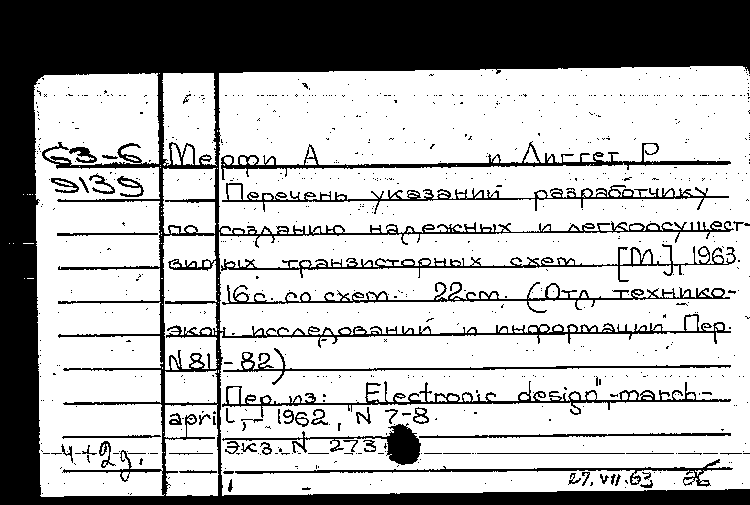 63-6 Мерфи, А и Лиггет, Р
9139 Перечень указаний разработчику
по созданию надежных и легкоосущест-
вимых транзисторных схем. [М.], 1963.
16с. со схем. 22см. (Отд. технико-
экон. исследований и информации Пер.
N 81-82)
Пер. из: Electronic design", -march-
april, -1962, N 7-8.
экз. N 273
4+2д.
27.VII.63